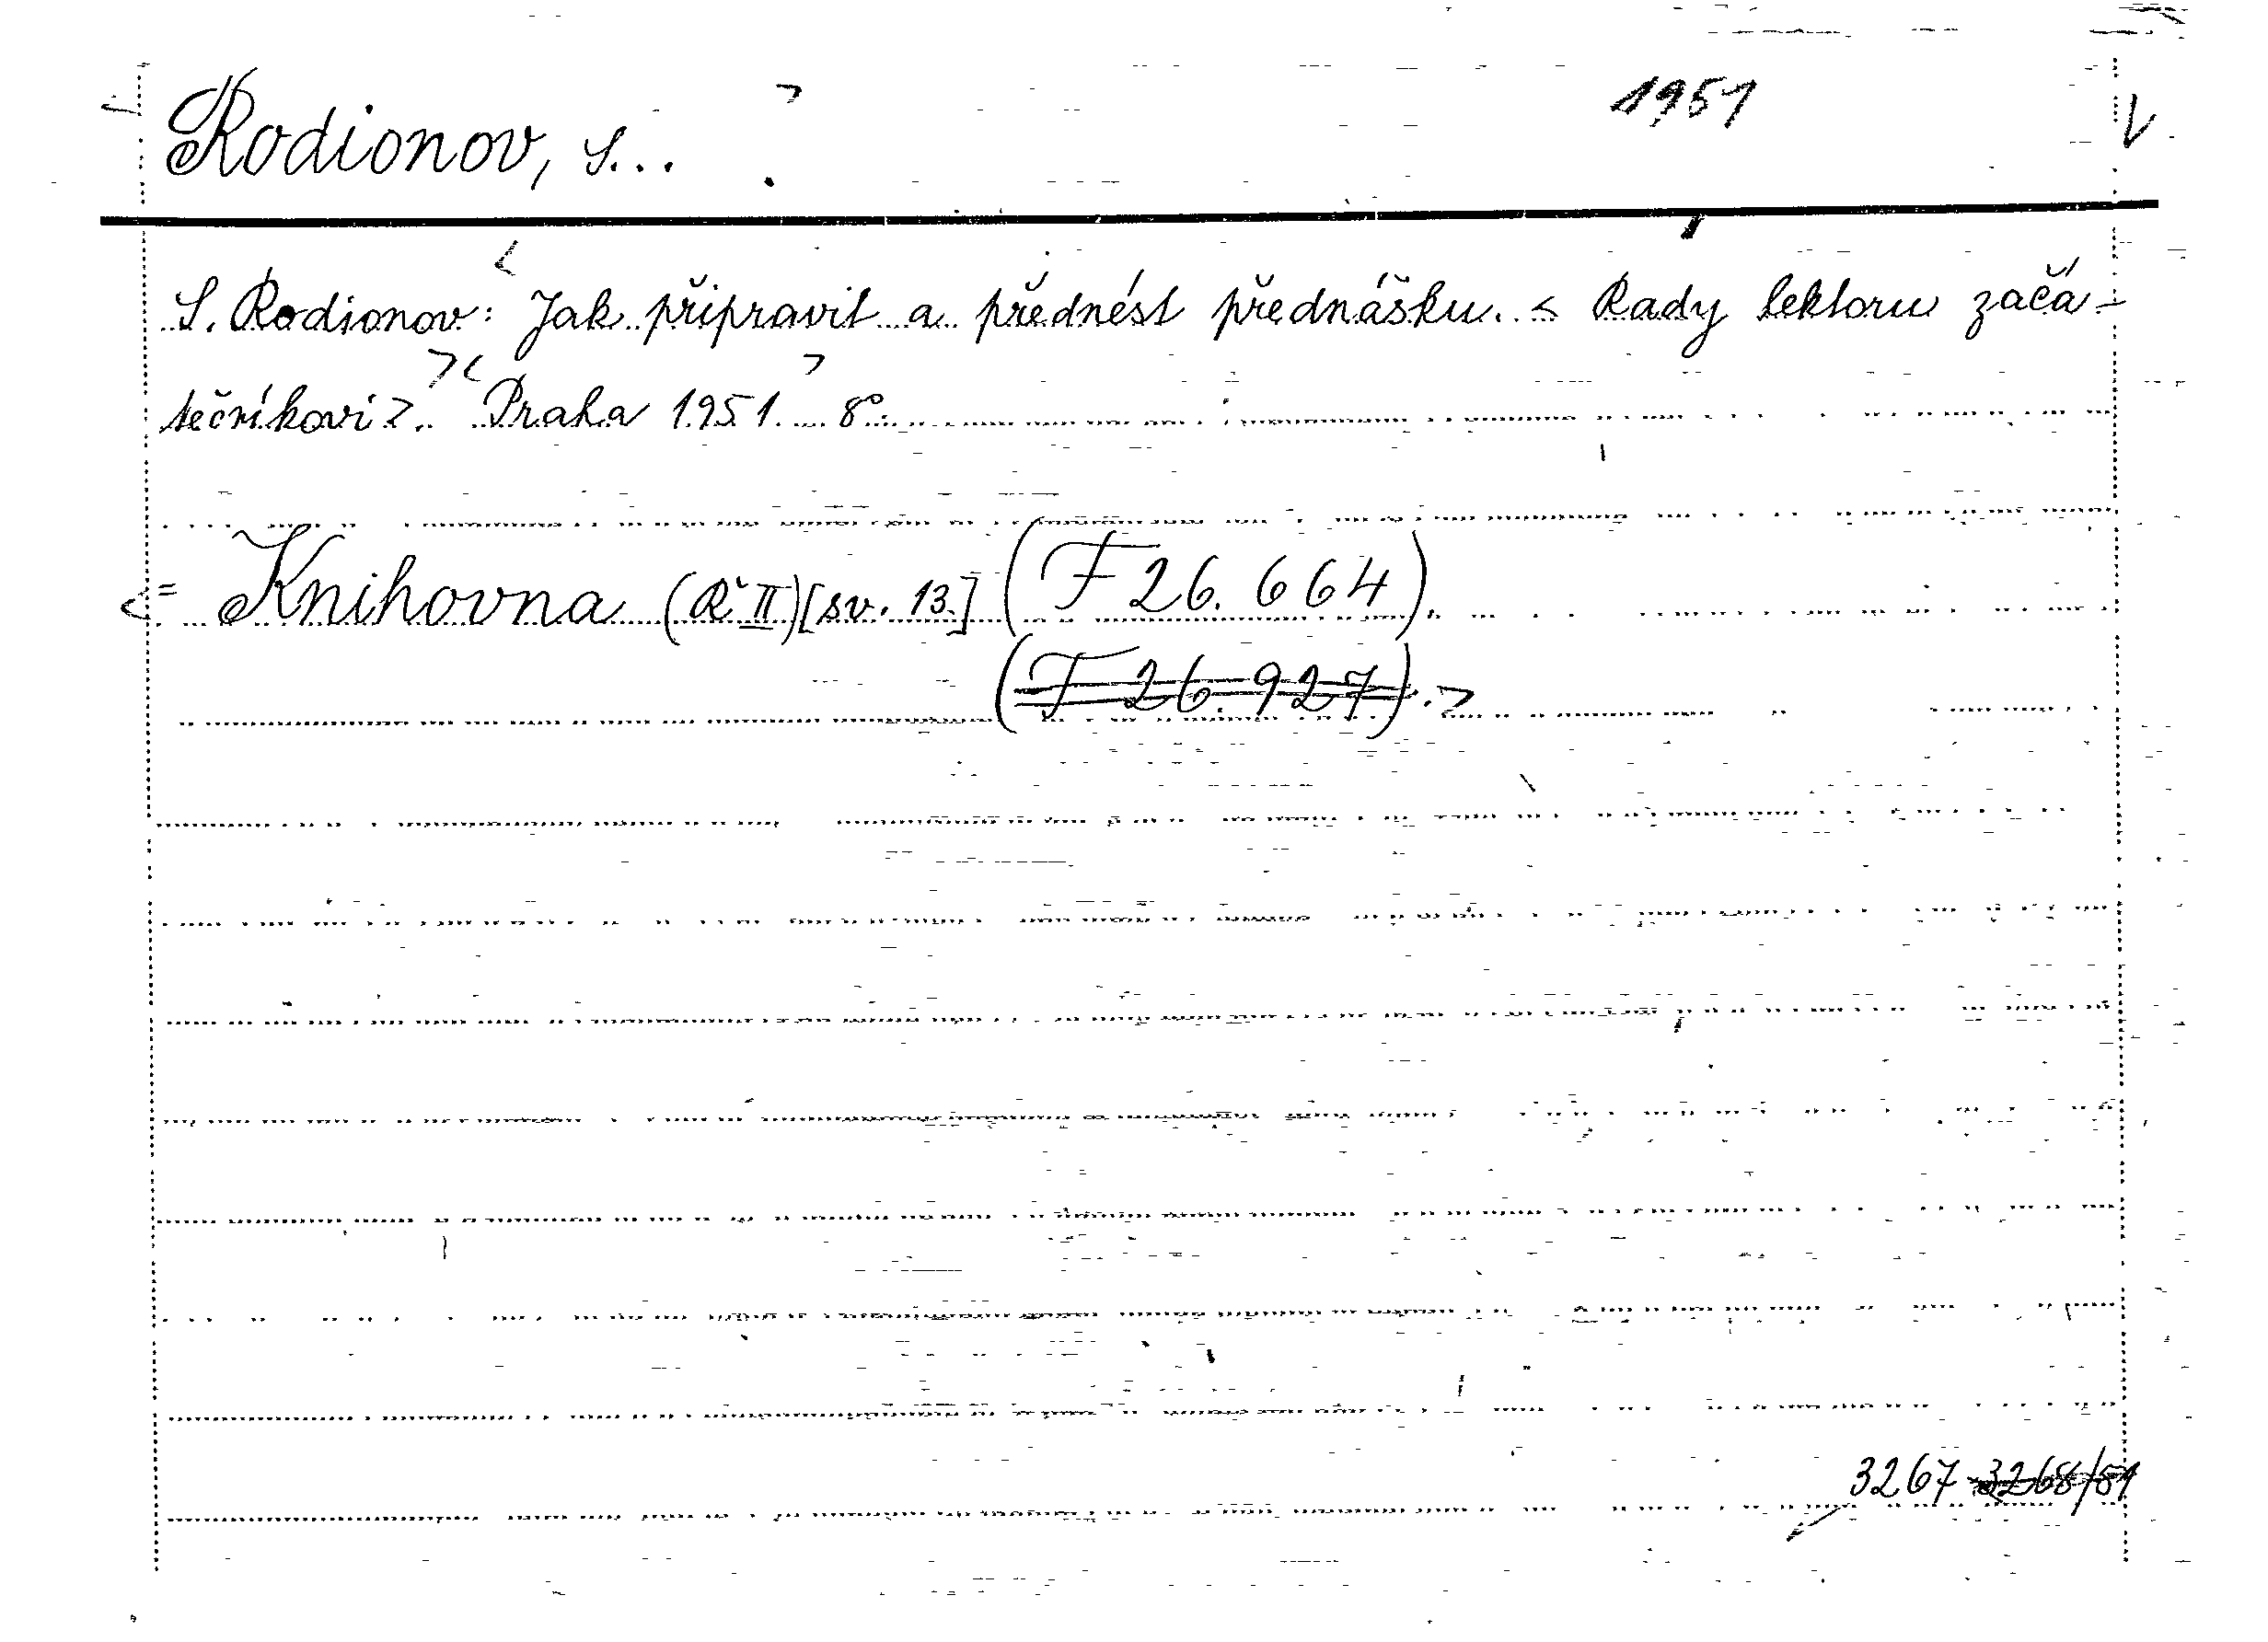 Rodionov, S... 1951
S. Rodionov: Jak připravit a přednést přednášku. < Rady lektoru začá-
tečníkovi >. Praha 1951. 8°.
= Knihovna (Ř II) [sv. 13.] (F 26.664).
(F 26.927).
3267 3268/51